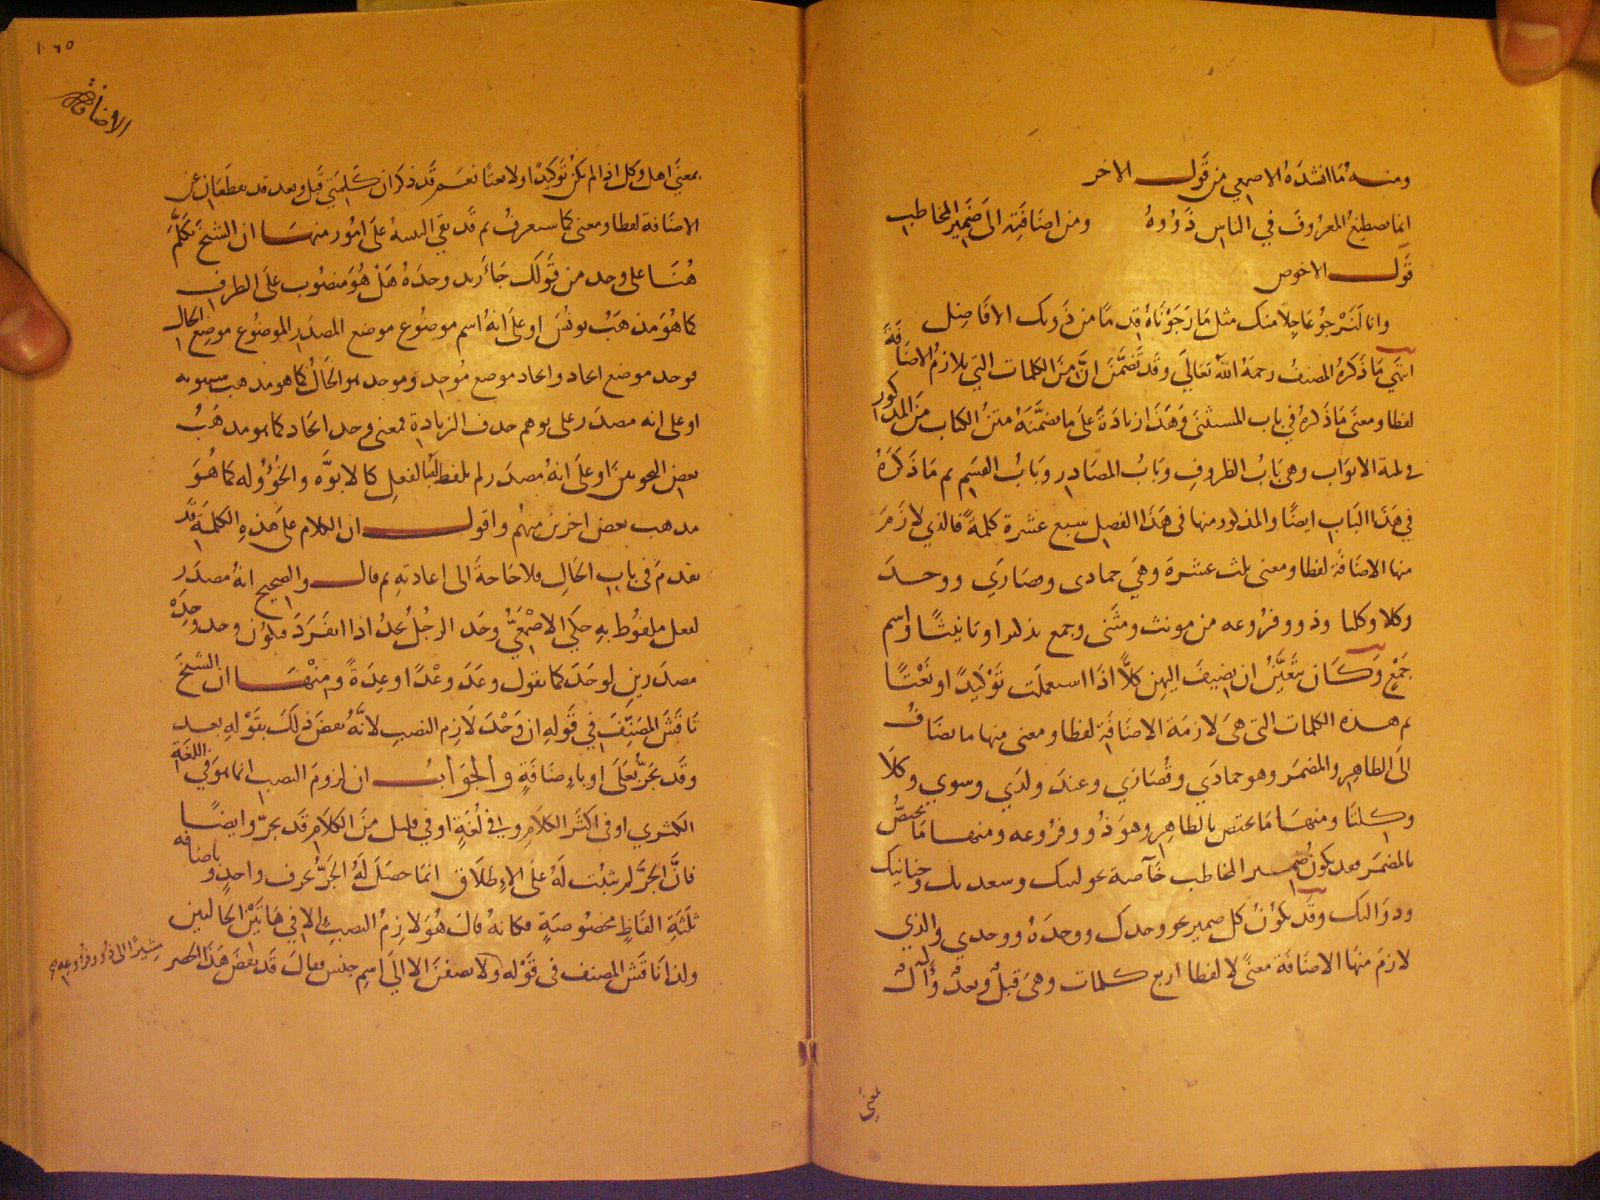 ومنه ما انشده الاصمعي من قول الاخر
انما يصطنع المعروف في الناس ذووه ومن اضافته الى ضمير المخاطب
قول الاحوص
وانا لنرجو عاجلا منك مثل ما رجوناه قدما من ذويك الافاضل
انتهى ما ذكره المصنف رحمه الله تعالى وقد تضمن ان من الكلمات التي يلازم الاضافة
لفظا ومعنى ما ذكره في باب المستثنى وهذا زيادة على ما تضمنه متن الكتاب من المذكور
في ثلثة الابواب وهي باب الظروف وباب المصادر وباب القسم ثم ما ذكره
في هذا الباب ايضا والمذكور منها في هذا الفصل سبع عشرة كلمة فالذي لازم
منها الاضافة لفظا ومعنى ثلث عشرة وهي حمادى وقصارى ووحد
وكلا وكلتا وذو وفروعه من مونث ومثنى وجمع تذكيرا وتانيثا واسم
جمع وكان يتعين ان يضيف اليهن كلا اذا استعملت توكيدا او نعتا
ثم هذه الكلمات التي هي لازمة الاضافة لفظا ومعنى منها ما يضاف
الى الظاهر والمضمر وهو حمادى وقصارى وعند ولدى وسوى وكلا
وكلتا ومنها ما يختص بالظاهر وهو ذو وفروعه ومنها ما يختص
بالمضمر وقد يكون ضمير المخاطب خاصة نحو لبيك وسعديك وحنانيك
ودواليك وقد يكون كل ضمير نحو وحدك ووحده ووحدي والذي
لازم منها الاضافة معنى لا لفظا اربع كلمات وهي قبل وبعد وآل
بمعنى
١٠٦٥
الاضافة
بمعنى اهل وكل اذا لم يكن توكيدا ولا نعتا نعم قد ذكر ان كلمتي قبل وبعد قد يقطعان عن
الاضافة لفظا ومعنى كما ستعرف ثم قد بقي التنبيه على امور منها ان الشيخ تكلم
هنا على وحد من قولك جاء زيد وحده هل هو منصوب على الظرف
كما هو مذهب يونس او على انه اسم موضوع موضع المصدر الموضوع موضع الحال
فوحد موضع ايحاد وايحاد موضع موحد وموحد هو الحال كما هو مذهب سيبويه
او على انه مصدر على توهم حذف الزيادة فمعنى وحد ايحاد كما هو مذهب
بعض النحويين او على انه مصدر لم يلفظ له بالفعل كالابوة والخؤولة كما هو
مذهب بعض اخرين منهم واقول ان الكلام على هذه الكلمة قد
تقدم في باب الحال فلا حاجة الى اعادته ثم قال والصحيح انه مصدر
لفعل ملفوظ به حكى الاصمعي وحد الرجل يحد اذا انفرد فيكون وحد وحدة
مصدرين لوحد كما تقول وعد وعدا وعدة ومنها ان الشيخ
ناقش المصنف في قوله ان وحد لازم النصب لانه نقض ذلك بقوله بعد
وقد يجر بعلى او باضافة والجواب ان لزوم النصب انما هو في اللغة
الكثرى او في اكثر الكلام وفي لغة او في قليل من الكلام قد يجر وايضا
فان الجر لم يثبت له على الاطلاق انما حصل له الجر بحرف واحد وباضافة
ثلثة الفاظ مخصوصة فكانه قال هو لازم النصب الا في هاتين الحالتين
ولذا ناقش المصنف في قوله ولا يضفن الا الى اسم جنس فقال قد نقض هذا الحصر
مشيرا الى ذو وفروعه